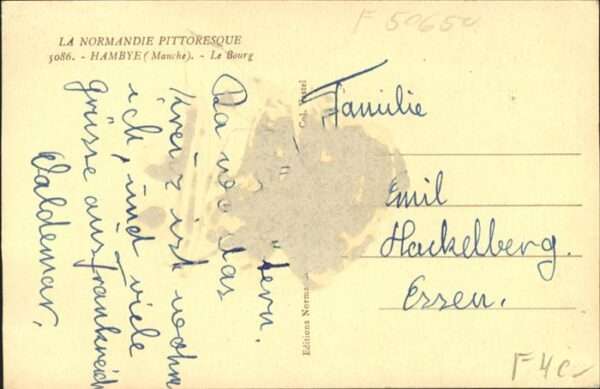 LA NORMANDIE PITTORESQUE
5086. - HAMBYE (Manche). - Le Bourg
F 50650
tern.
Da wo das
Kreuz ist wohn
ich, und viele
Grüsse aus Frankreich
Waldemar.
Editions Norma
Col. Vastel
Familie
Emil
Hackelberg.
Essen.
F 4c-